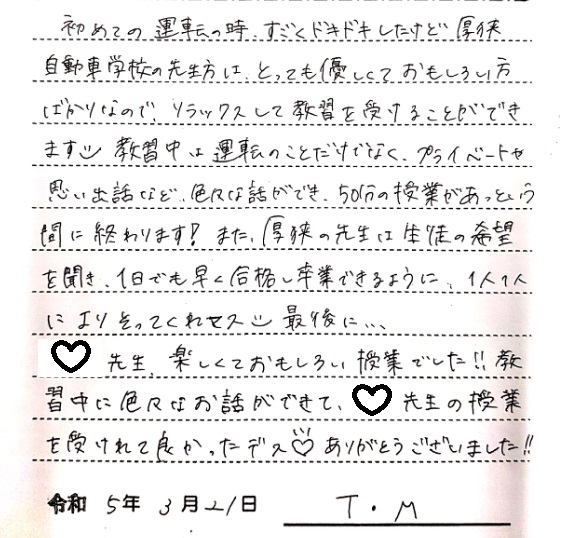 初めての運転の時、すごくドキドキしたけど厚狭
自動車学校の先生方は、とっても優しくておもしろい方
ばかりなので、リラックスして教習を受けることができ
ます 教習中は運転のことだけでなく、プライベートや
思い出話など、色々な話ができ、50分の授業があっという
間に終わります! また、厚狭の先生は生徒の希望
を聞き、1日でも早く合格し卒業できるように、1人1人
によりそってくれマス 最後に...
♡先生、楽しくておもしろい授業でした!! 教
習中に色々なお話ができて、♡先生の授業
を受けれて良かったデス♡ ありがとうございました!!
令和 5年 3月21日 T・M